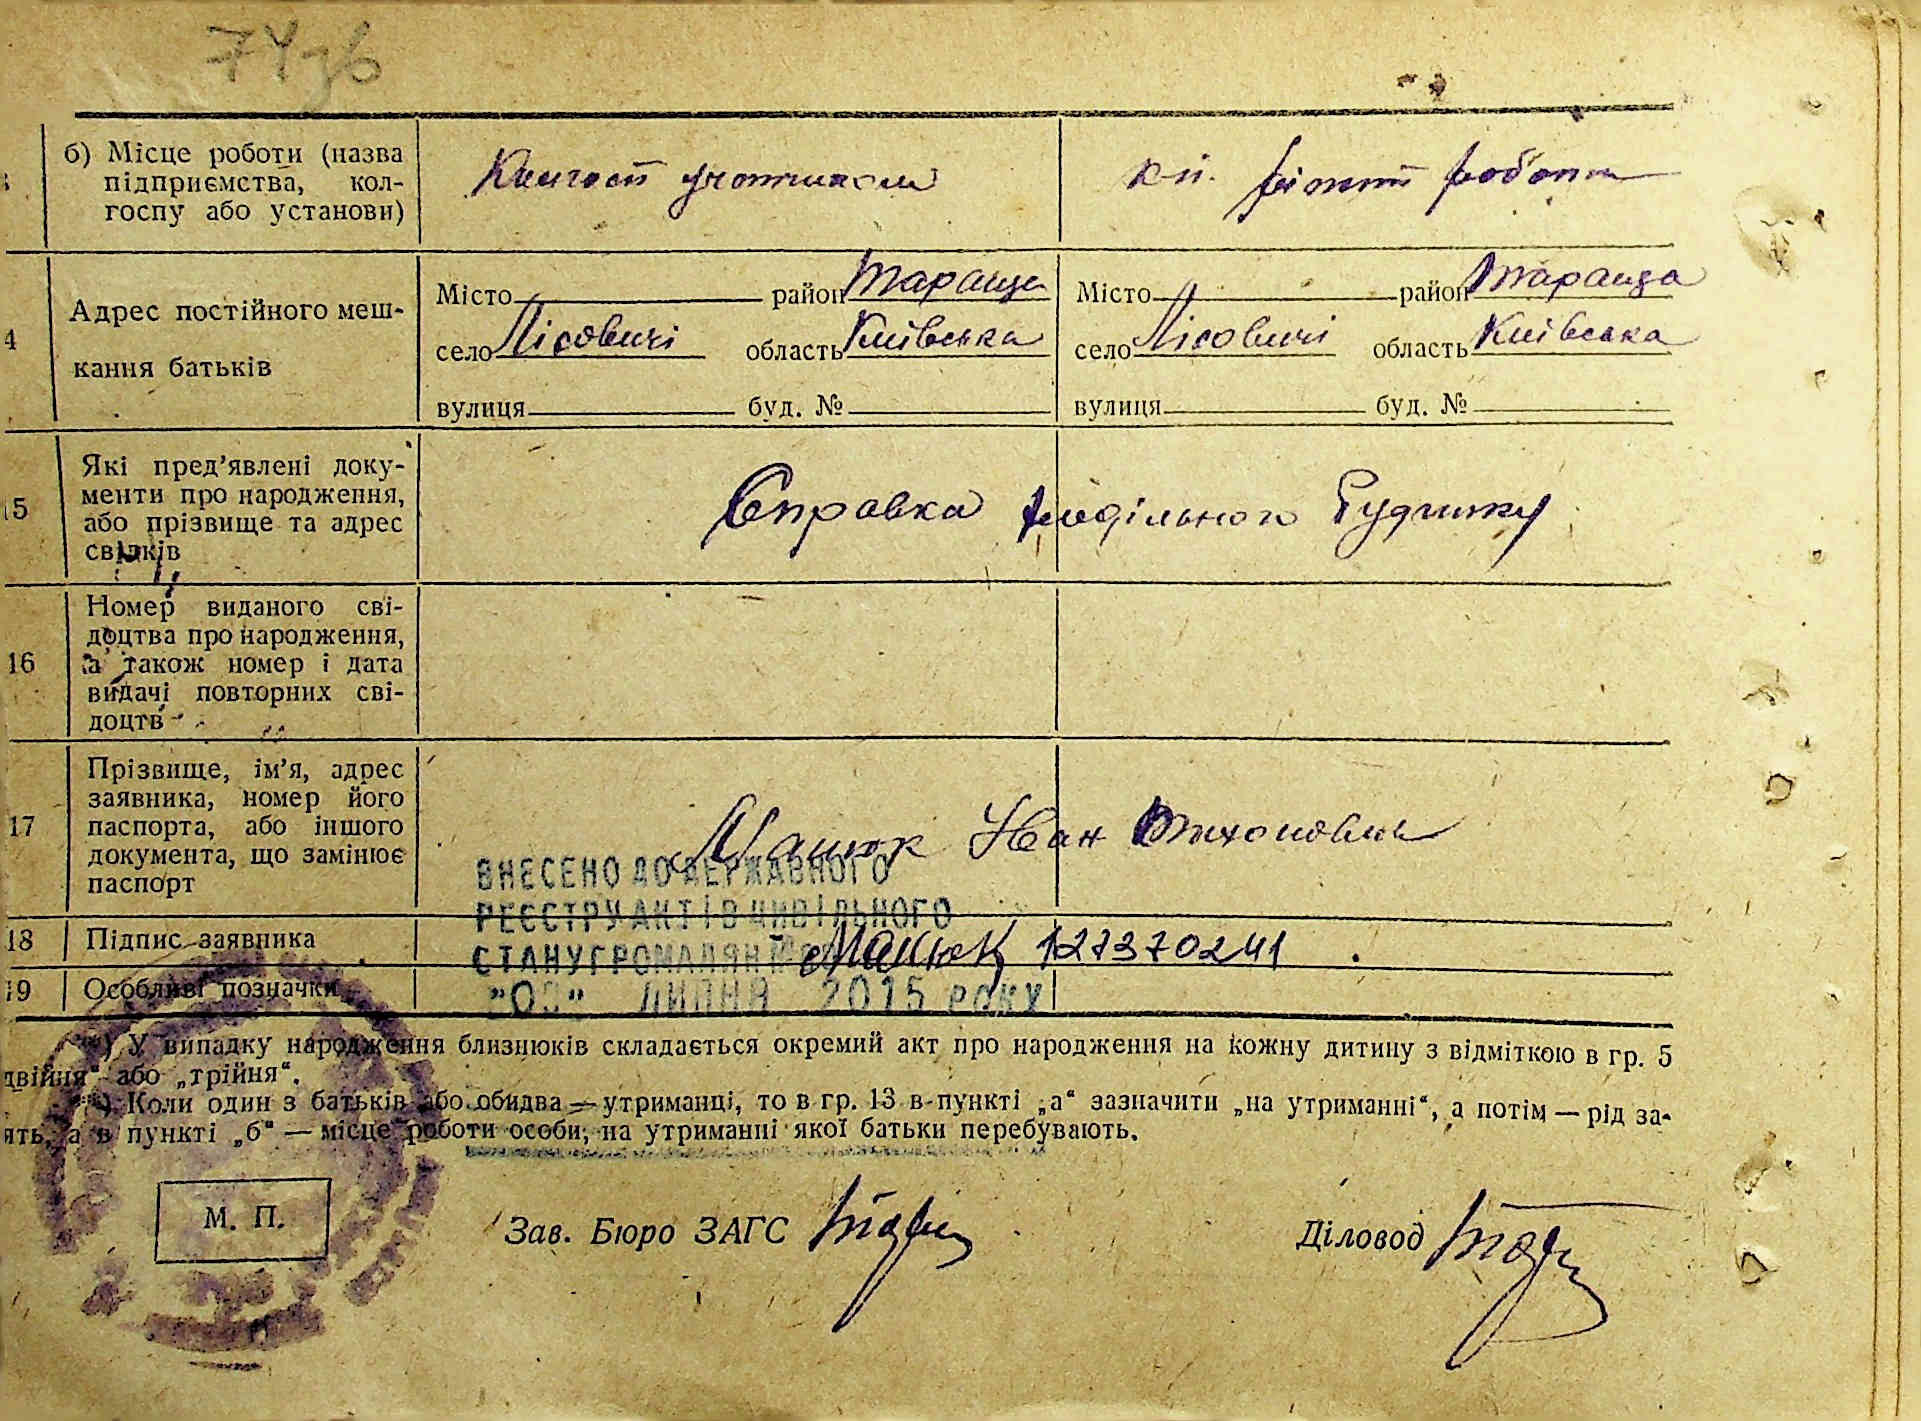 74зв
б) Місце роботи (назва
підприємства, кол-
госпу або установи)
к-п. різні роботи
4
Адрес постійного меш-
кання батьків
Місто район Тараща
село Лісовичі область Київська
вулиця буд. №
Місто район Тараща
село Лісовичі область Київська
вулиця буд. №
15
Які пред’явлені доку-
менти про народження,
або прізвище та адрес
свідків
Справка родільного Будинку
16
Номер виданого сві-
доцтва про народження,
а також номер і дата
видачі повторних сві-
доцтв
17
Прізвище, ім’я, адрес
заявника, номер його
паспорта, або іншого
документа, що замінює
паспорт
Мацюк Іван Тихонович
ВНЕСЕНО ДО ДЕРЖАВНОГО
РЕЄСТРУ АКТІВ ЦИВІЛЬНОГО
СТАНУ ГРОМАДЯН
18
Підпис заявника
Мацюк 127370241
19
Особливі позначки
ЛИПНЯ 2015 РОКУ
*) У випадку народження близнюків складається окремий акт про народження на кожну дитину з відміткою в гр. 5
двійня“ або „трійня“.
**) Коли один з батьків або обидва — утриманці, то в гр. 13 в пункті „а“ зазначити „на утриманні“, а потім — рід за-
ять, а в пункті „б“ — місце роботи особи, на утриманні якої батьки перебувають.
М. П.
Зав. Бюро ЗАГС
Діловод